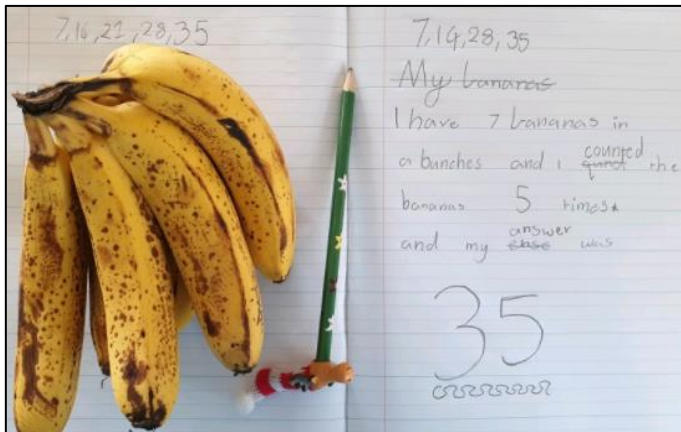 7,14,21,28,35
7,14,28,35
My bananas
I have 7 bananas in
a bunches and i counted the
bananas 5 times
and my answer was
35